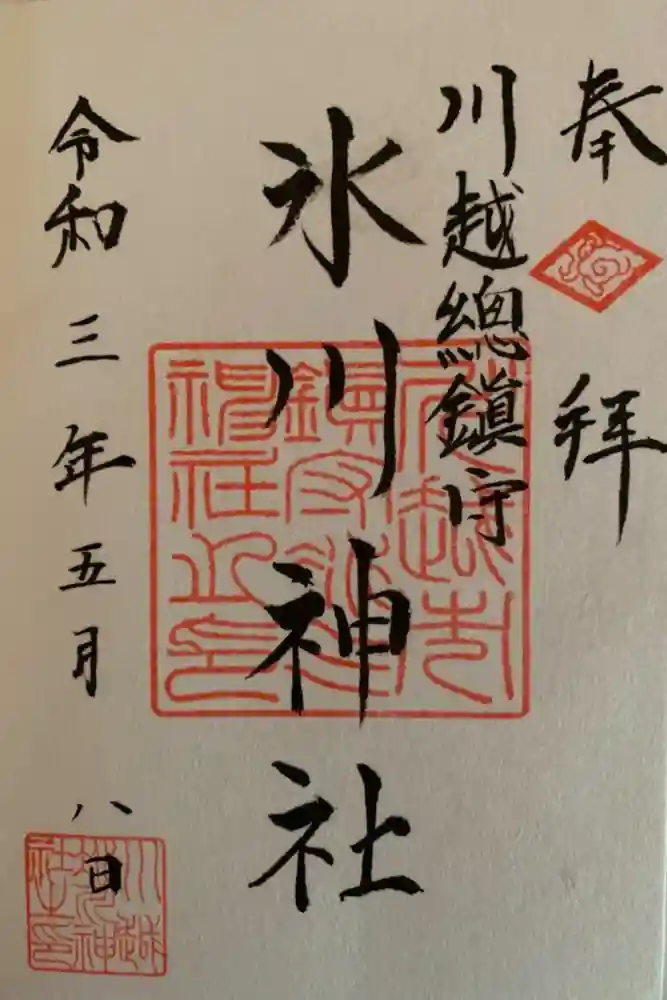 奉拜
川越總鎮守
氷川神社
令和三年五月八日